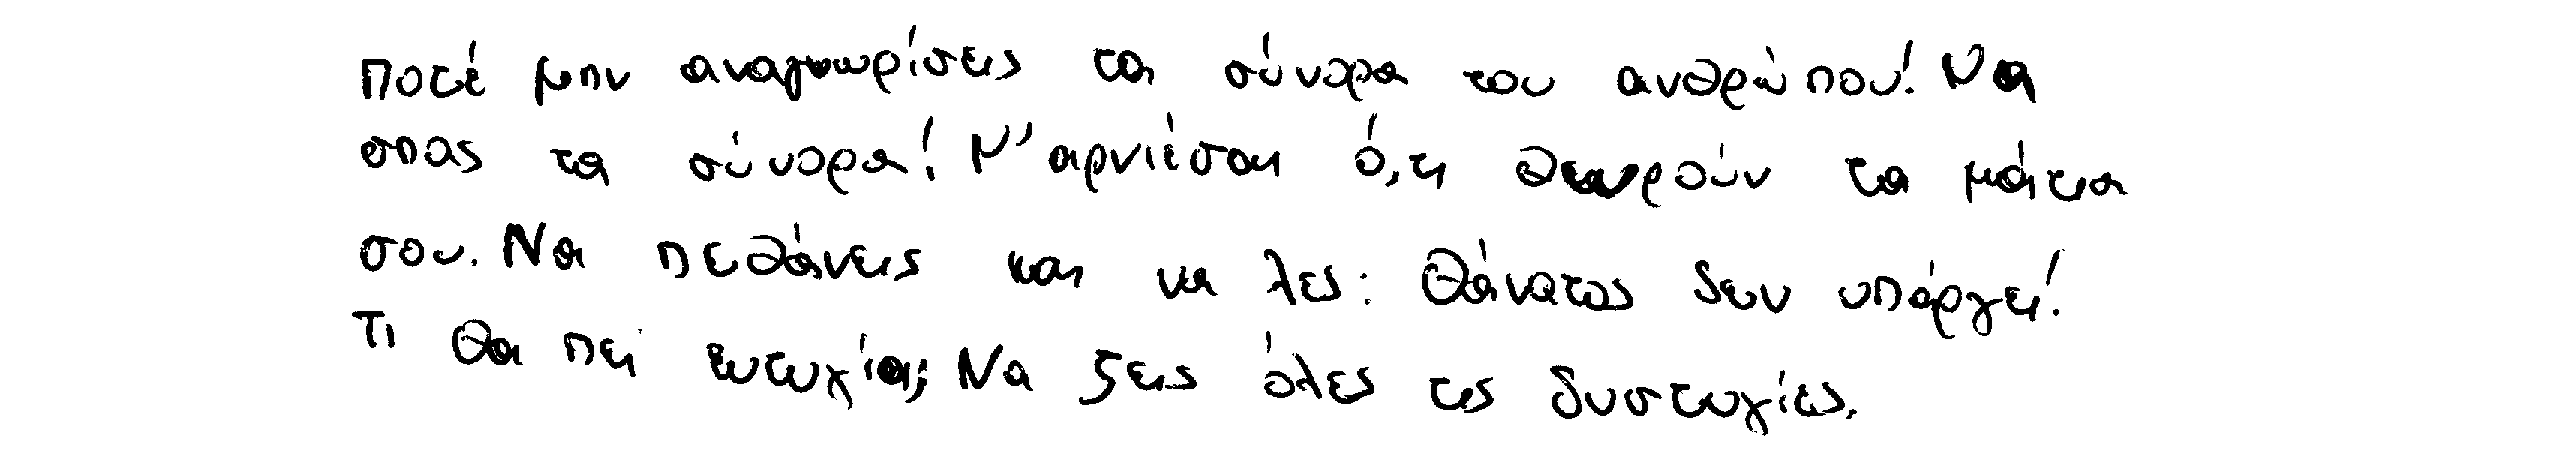 Ποτέ μην αναγνωρίσεις τα σύνορα του ανθρώπου! Να
σπας τα σύνορα! Ν' αρνιέσαι ό,τι θεωρούν τα μάτια
σου. Να πεθάνεις και να λες: Θάνατος δεν υπάρχει!
Τι θα πει ευτυχία; Να ζεις όλες τις δυστυχίες.